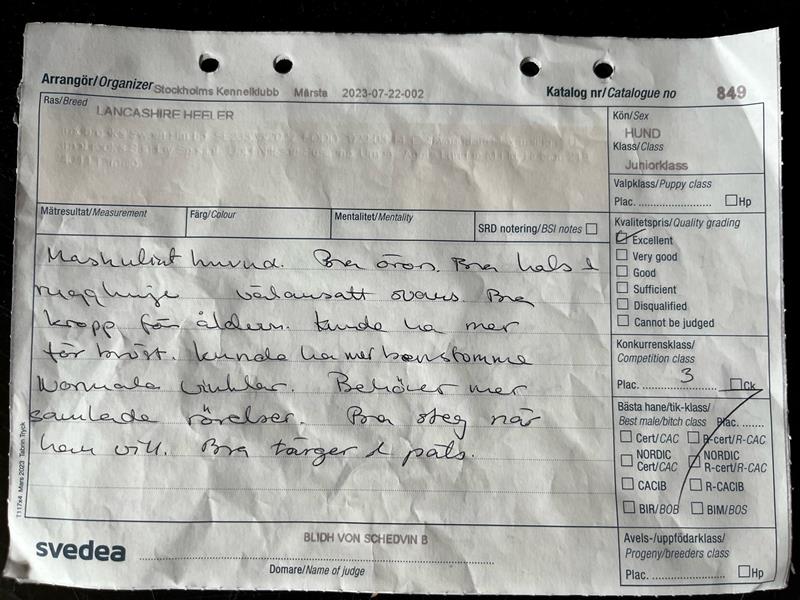 Arrangör/Organizer Stockholms Kennelklubb Märsta 2023-07-22-002 Katalog nr/Catalogue no 849
Ras/Breed LANCASHIRE HEELER
Kön/Sex
HUND
Klass/Class
Juniorklass
Valpklass/Puppy class
Plac. Hp
Mätresultat/Measurement Färg/Colour Mentalitet/Mentality SRD notering/BSI notes
Kvalitetspris/Quality grading
Excellent
Very good
Good
Sufficient
Disqualified
Cannot be judged
Maskulint huvud. Bra öron. Bra hals &
rygglinje välansatt svans. Bra
kropp för åldern. Kunde ha mer
förbröst. Kunde ha mer benstomme
Normala vinklar. Behöver mer
samlade rörelser. Bra steg när
han vill. Bra färger & päls.
Konkurrensklass/
Competition class
Plac. 3 Ck
Bästa hane/tik-klass/
Best male/bitch class Plac.
Cert/CAC R-cert/R-CAC
NORDIC Cert/CAC NORDIC R-cert/R-CAC
CACIB R-CACIB
BIR/BOB BIM/BOS
Avels-/uppfödarklass/
Progeny/breeders class
Plac. Hp
T117x4 Mars 2023 Tabrin Tryck
svedea
BLIDH VON SCHEDVIN B
Domare/Name of judge